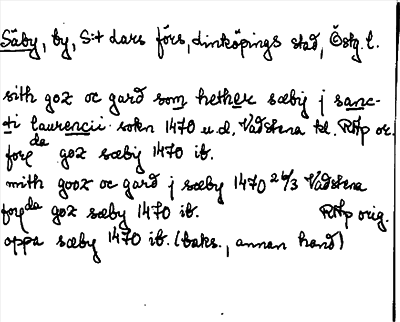 Säby, by, S:t Lars förs, Linköpings stad, Östg. l.
sith goz oc gard som hether sæby j sanc-
ti laurencii sokn 1470 u.d. Vadstena kl. RAp or.
foreda goz sæby 1470 ib.
mith gooz oc gard j sæby 1470 26/3 Vadstena
foreda goz sæby 1470 ib. RAp orig.
oppa sæby 1470 ib. (baks., annan hand)